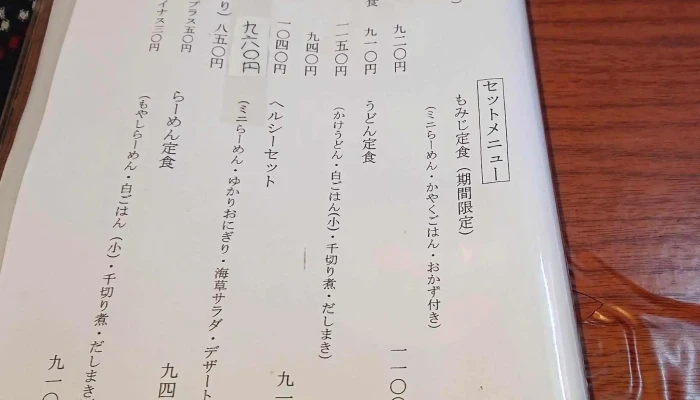 九二〇円
食
九一〇円
一一五〇円
九四〇円
一〇四〇円
九六〇円
り)
八五〇円
プラス五〇円
イナス三〇円
セットメニュー
もみじ定食(期間限定)
(ミニらーめん・かやくごはん・おかず付き)
一一〇〇
うどん定食
(かけうどん・白ごはん(小)・千切り煮・だしまき)
九一
ヘルシーセット
(ミニらーめん・ゆかりおにぎり・海草サラダ・デザート
九四
らーめん定食
(もやしらーめん・白ごはん(小)・千切り煮・だしまき
九一〇